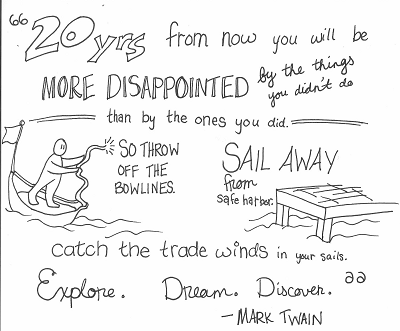 “20 yrs from now you will be
MORE DISAPPOINTED by the things
you didn't do
than by the ones you did.
SO THROW
OFF THE
BOWLINES.
SAIL AWAY
from
safe harbor.
catch the trade winds in your sails.
Explore. Dream. Discover.”
—MARK TWAIN